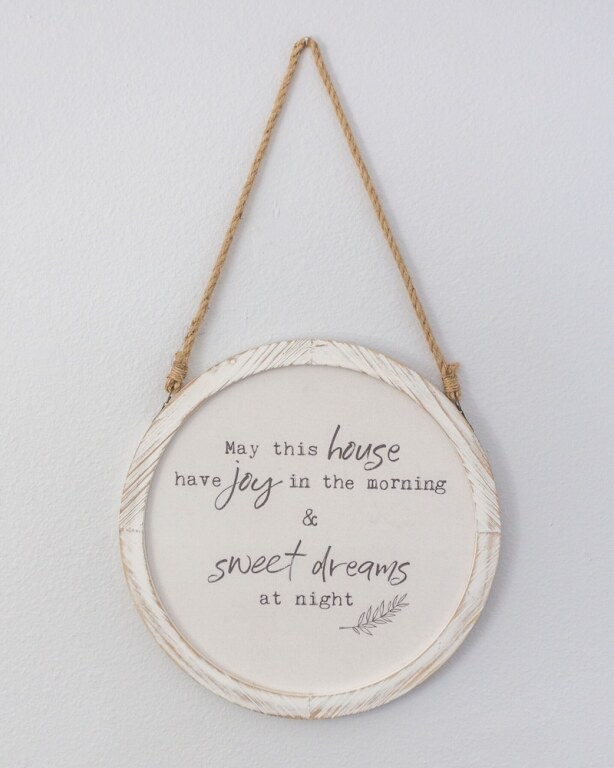 May this house
have joy in the morning
&
sweet dreams
at night